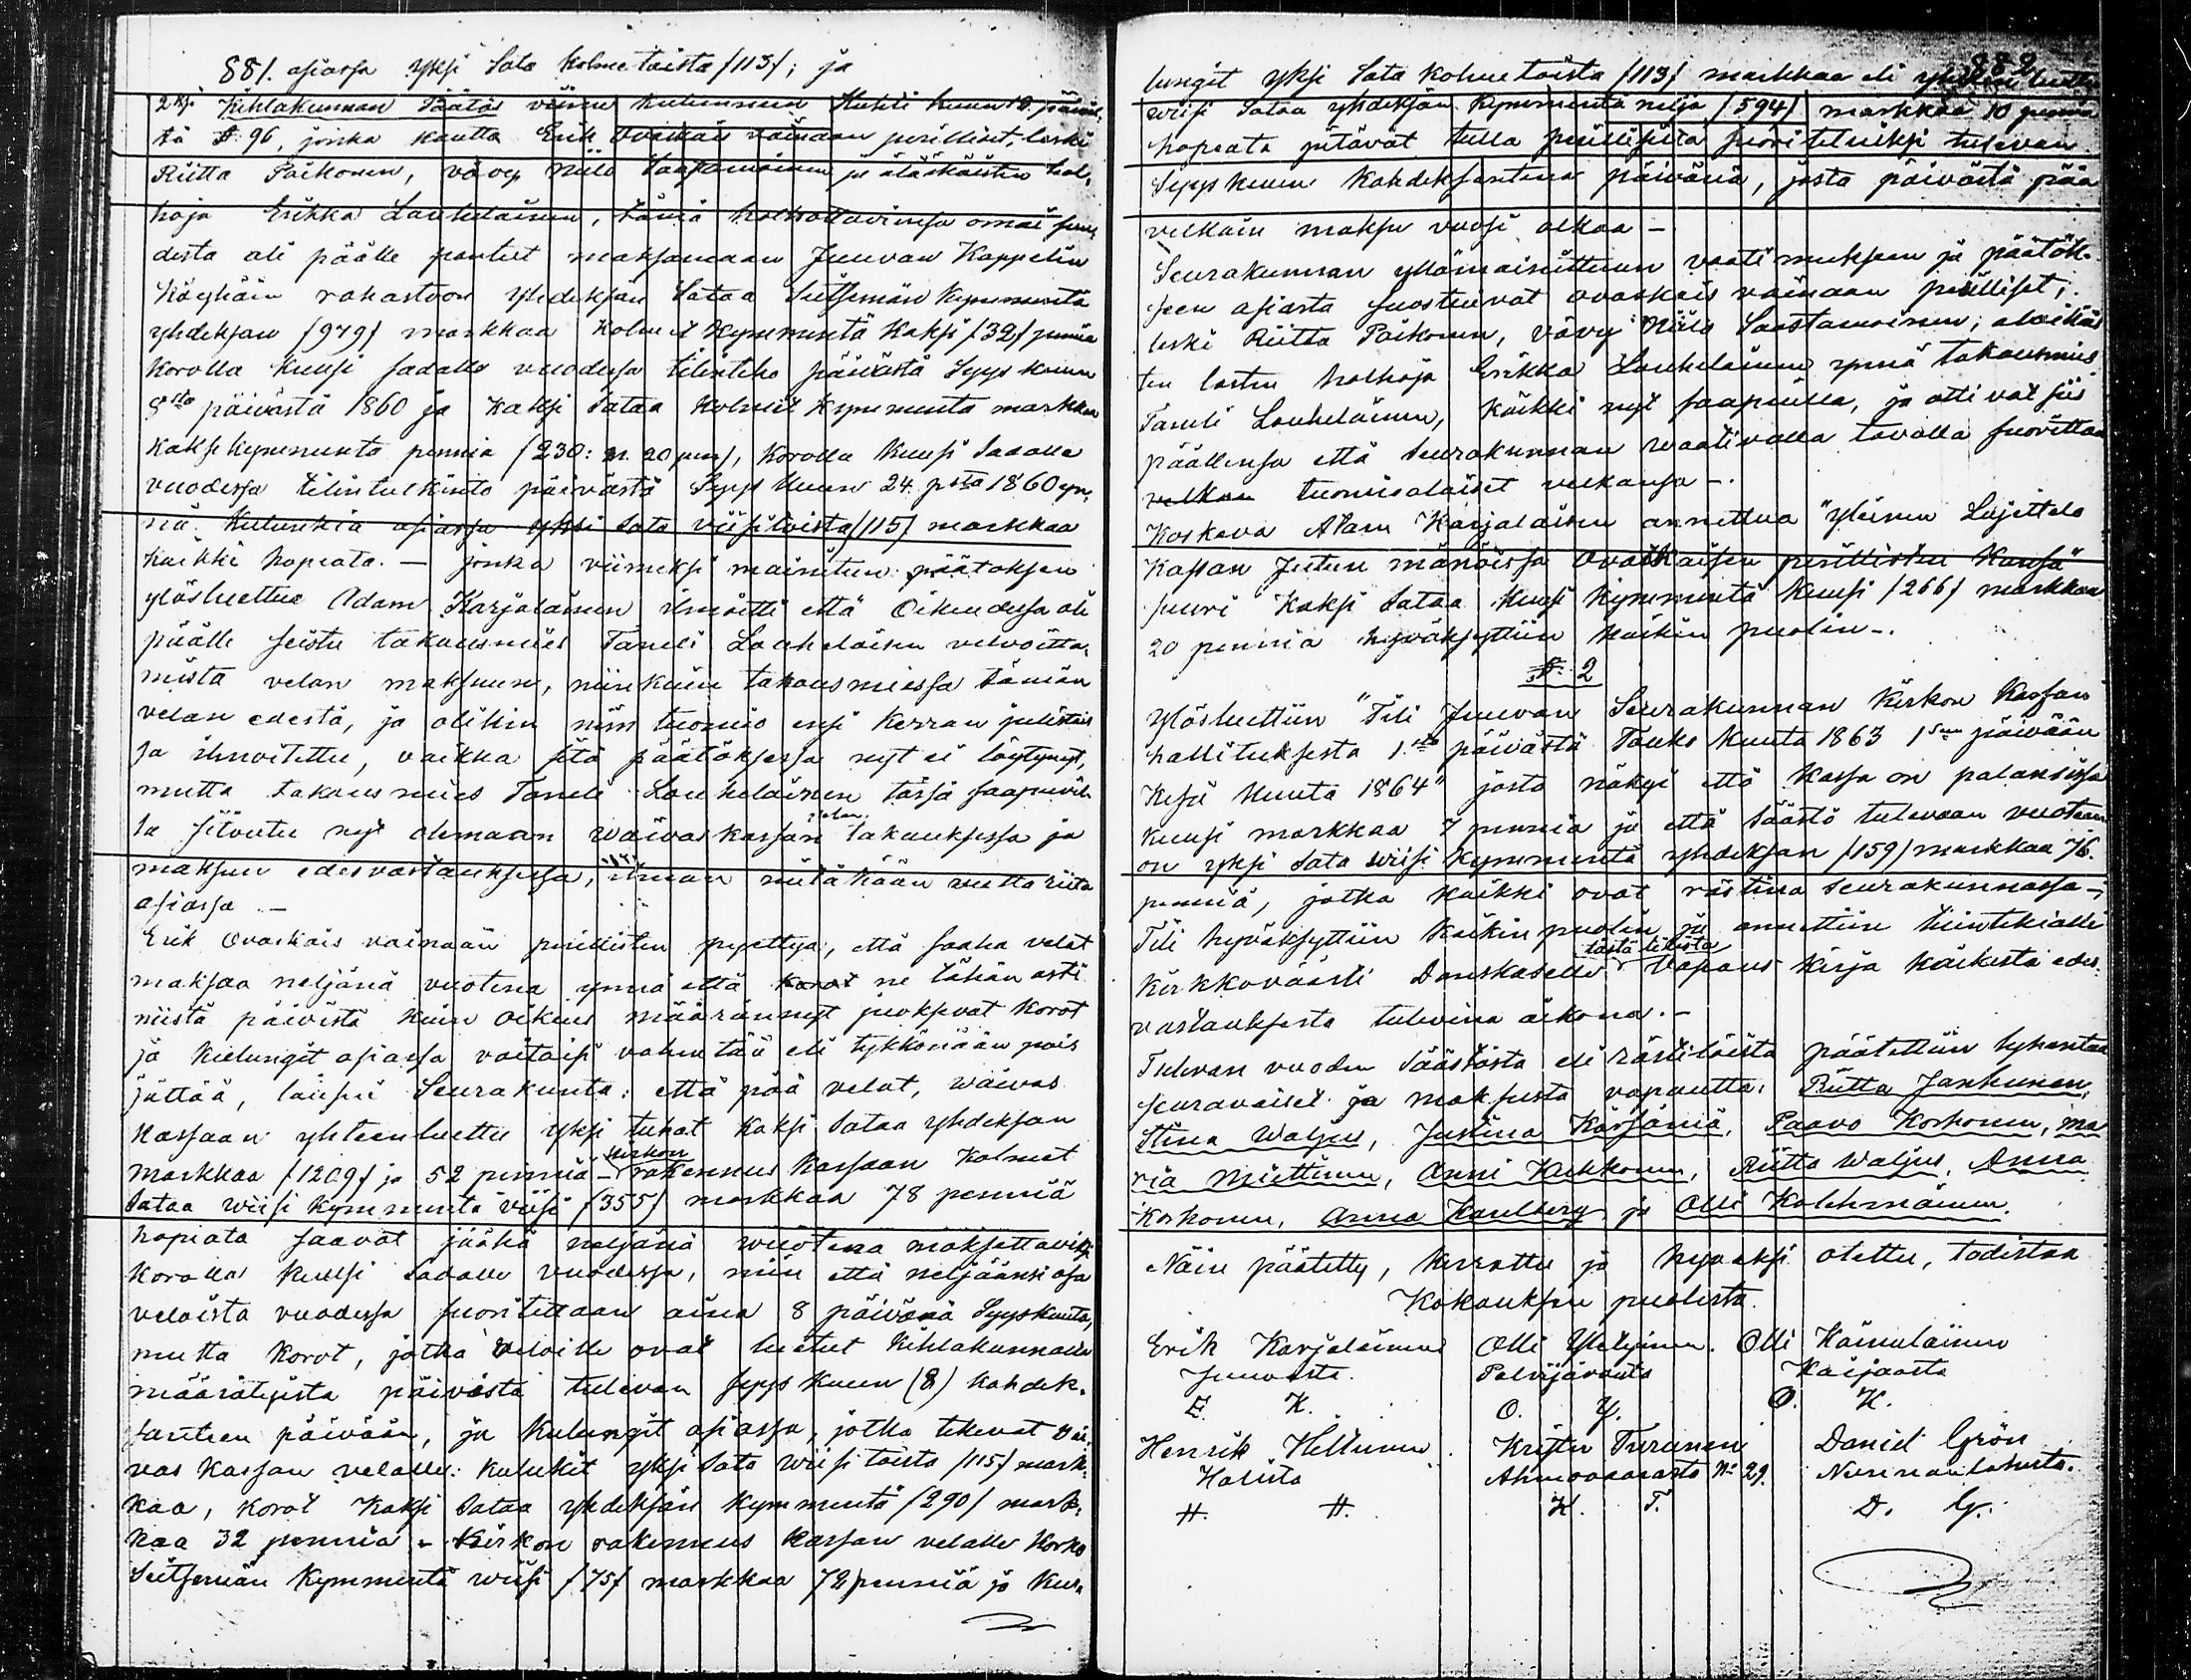 881. asiassa yksi Sata kolmetoista /113/; ja
2ksi Kihlakunnan Päätös viime kuluneen Huhti kuun 12 päiväl,
tä § 96, jonka kautta Erik Ovaskais vainaan perilliset, leski
Riitta Paikonen, vävy Niilo Saastamoinen ja alaikäisten hol,
hoja Erikka Louhelainen, tämä holhottavainsa omai suu,
desta oli päälle pantut maksamaan Juuvan Kappelin
Köyhäin rahastoon yhdeksän Sataa Seitsemän Kymmentä
yhdeksan /979/ markkaa Kolmet Kymmentä Kaksi /32/ penniä
Korolla Kuusi sadalle vuodessa tilinteko päivästä Syys kuun
8sta päivästä 1860 ja Kaksi Sataa Kolmet Kymmentä markkaa
kaksikymmentä penniä /230: m. 20 pen/, Korolla Kuusi Sadalle
vuodessa tilintutkinto päivästä Syys Kuun 24 psta 1860 yn,
nä. Kulunkia asiassa yksi Sata viisitoista /115/ markkaa
kaikki hopiata. — jonka viimeksi mainitun päätöksen
ylösluettua Adam Karjalainen ilmoitti että Oikeudessa oli
päälle seistu takausmies Taneli Louhelaisen velvoitta,
mista velan maksuun, niinkuin takausmiessa tämän
velan edestä, ja olikin niin tuomio ensi Kerran julistais
sa ilmoitettu, vaikka sitä päätöksessä nyt ei löytynyt,
mutta takausmies Taneli Louhelainen tässä saapuvil,
la sitoutu nyt olemaan Waivaskassan velan takauksessa ja
maksun edesvastauksessa, ilman mitäkään vuttariita
asiassa. —
Erik Ovaskais vainaan perillisten pyyettyä, että saaha velat
maksaa neljänä vuotena ynnä että korot ne tähän asti
niistä päivistä kuin oikeus määrännyt juoksevat korot
ja Kulungit asiassa voitaisi vähentää eli tykkönään pois
jättää, lausui Seurakunta: että pää velat, waivas
Kassaan yhteenluettu yksi tuhat kaksi Sataa yhdeksan
markkaa /1209/ ja 52 penniä — kirkon rakennus Kassaan Kolmet
Sataa wiisi Kymmentä viisi /355/ markkaa 78 penniä
hopiata saavat jäähä neljänä wuotena maksettaviksi
Korolla Kuusi Sadalle vuodessa, niin että neljäänsi osa
veloista vuodessa suoritetaan aina 8 päivänä Syyskuuta,
mutta Korot, jotka veloille ovat luetut Kihlakunnalta
määrätyistä päivästä tulevan syys Kuun (8) kahdek,
santeen päivään, ja Kulungit asiassa, jotka tekevät Vai,
vas Kassan velalle: Kulukit yksi Sata wiisi toista /115/ mark,
kaa, korot Kaksi Sataa yhdeksän Kymmentä /290/ mark,
kaa 32 penniä — Kirkon rakennus Kassan velalle Korko
Seitsemän Kymmentä wiisi /75/ markkaa 72 penniä ja Kul,
882
lungit yksi Sata kolmetoista /113/ markkaa eli
wiisi Sataa yhdeksän Kymmentä neljä /594/ markkaa 10 penniä
hopeata pitävät tulla perillisiltä suoritetuiksi tulevan
Syys kuun Kahdeksantena päivänä, josta päivästä pää
velkain maksu vuosi alkaa —
Seurakunnan yllämainittuun vaatimukseen ja päätök,
seen asiasta suostuivat ovaskais vainaan perilliset,
leski Riitta Paikonen, vävy Niilo Saastamoinen; alaikäis
ten lasten holhoja Erikka Louhelainen ynnä takausmies
Taneli Louhelainen, Kaikki nyt saapuilla, ja ottivat siis
päällensä että Seurakunnan waativalla tavalla suorittaa
velkan tuomioalaiset velkansa —.
Koskeva Atam Karjalaisen annettua "Yleinen Lujettelo
Kassan Jutun mänöissä Ovaskaisen perillisten kansa"
suuri Kaksi Sataa Kuusi Kymmentä Kuusi /266/ markkaa
20 penniä hyväksyttiin Kaikin puolin —.
§. 2
Ylösluettiin "Tili Juuvan Seurakunnan Kirkon Kassan
hallituksesta 1.stä päivästä Touko Kuuta 1863 1seen päivään
Kesä Kuuta 1864" josta näkyi että Kassa on palansissa
Kuusi markkaa 7 penniä ja että Säästö tulevaan vuoteen
on yksi Sata wiisi Kymmentä yhdeksan /159/ markkaa 76.
penniä, jotka kaikki ovat rästinä Seurakunnassa —;
Tili hyväksyttiin Kaikin puolin ja annettiin tilintekialle
Kirkkoväärti Danskaselle tästä tilistä Vapaus kirja kaikesta edes,
vastauksesta tulevina aikona. —
Tulevan vuoden Säästöstä eli rästilöistä päätettiin lyhentää
seuravaiset ja maksusta vapautta: Riitta Janhunen,
Stina Waljus, Justina Kärsämä, Paavo Korhonen, Ma
ria Miettinen, Anni Kukkonen, Riitta Waljus, Anna
Korhonen, Anna Karlberg ja Olli Kolehmainen.
Näin päätetty, kerrottu ja hyväksi otettu, todistaa
Kokouksen puolesta.
Erik Karjalainen Olli Olli Hämäläinen
Juuvasta. Polvijärvestä Kaijaasta
E. K. O. Y. O. H.
Henrik Hettunen Krister Turunen Daniel Grön
Halista Ahmovaarasta No 29. Nunnanlahesta.
H. H. K. T. D. G.